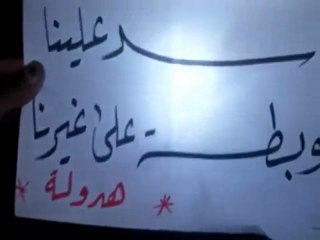 سد علينا
وبطة على غيرنا
* هدولة *